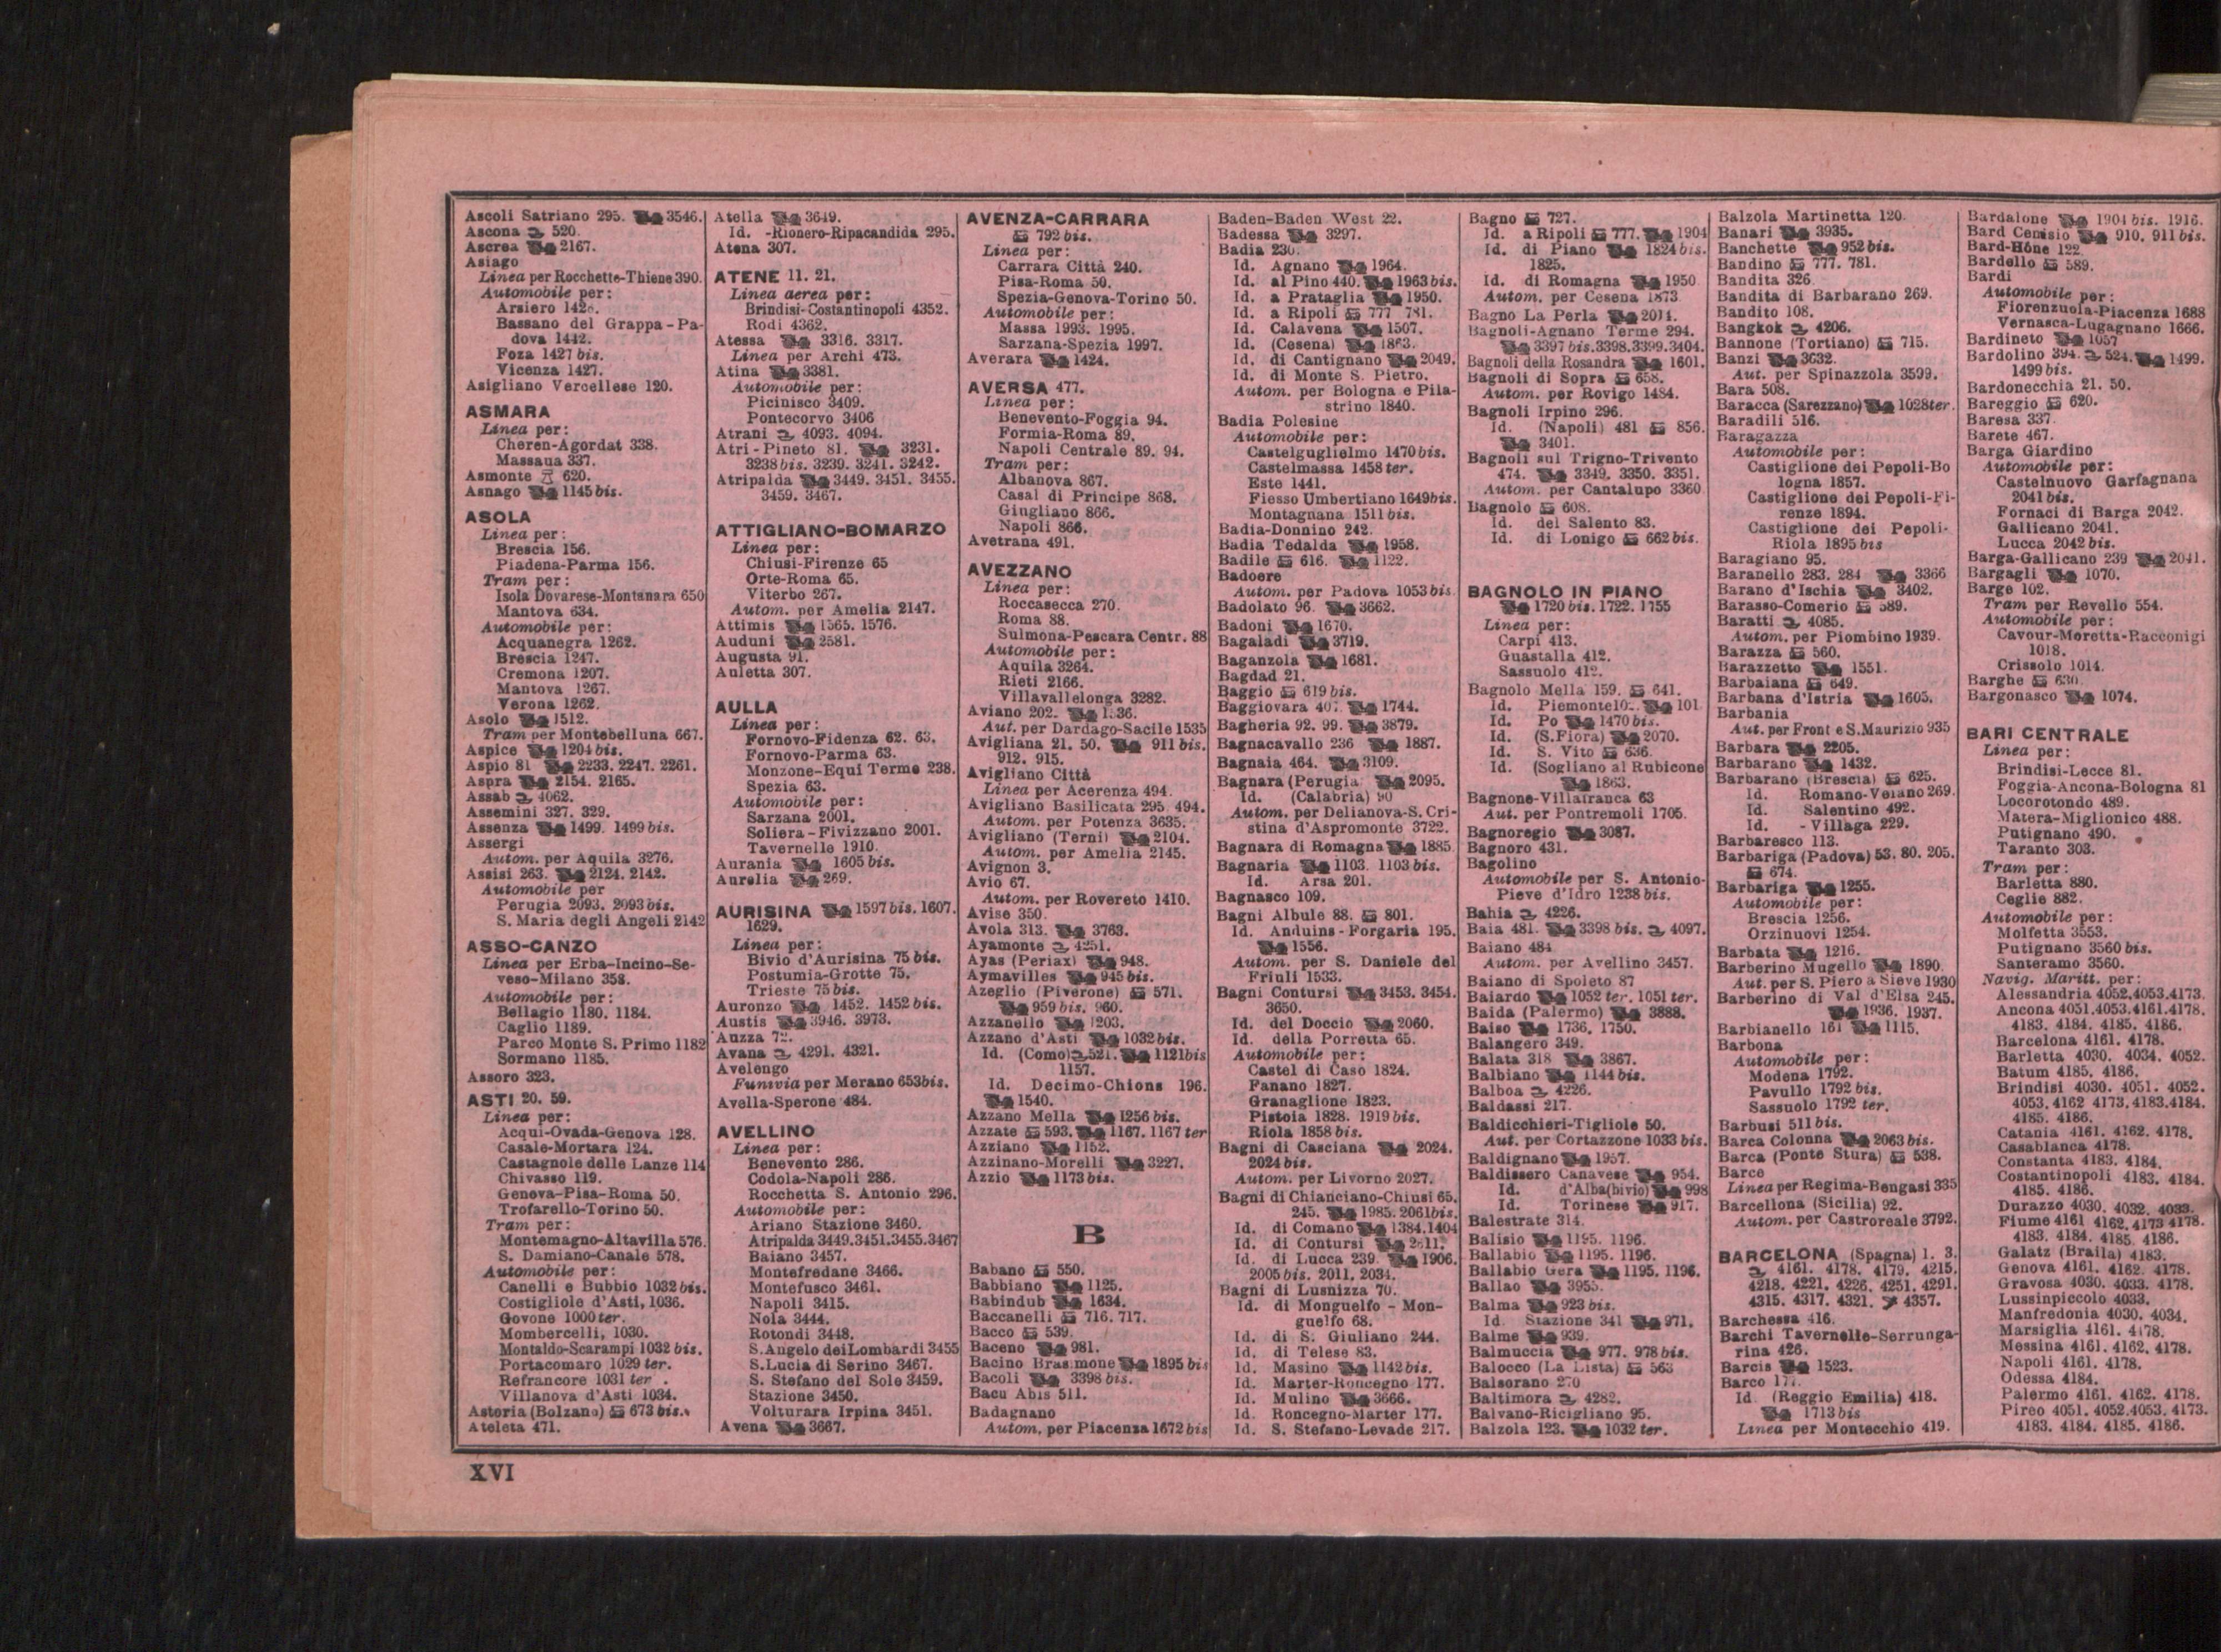 Ascoli Satriano 295. 3546.
Ascona 520.
Ascrea 2167.
Asiago
Linea per Rocchette-Thiene 390.
Automobile per:
Arsiero
Bassano del Grappa-Pa-
dova 1442.
Foza 1427 bis.
Vicenza 1427.
Asigliano Vercellese 120.
ASMARA
Linea per:
Cheren-Agordat 338.
Massaua 337.
Asmonte 620.
Asnago 1145 bis.
ASOLA
Linea per:
Brescia 156.
Piadena-Parma 156.
Tram per:
Isola Dovarese-Montanara 650
Mantova 634.
Automobile per:
Acquanegra 1262.
Brescia 1247.
Cremona 1207.
Mantova 1267.
Verona 1262.
Asolo 1512.
Tram per Montebelluna 667.
Aspice 1204 bis.
Aspio 81 2233. 2247. 2261.
Aspra 2154. 2165.
Assab 4062.
Assemini 327. 329.
Assenza 1499. 1499 bis.
Assergi
Autom. per Aquila 3276.
Assisi 263. 2124. 2142.
Automobile per
Perugia 2093. 2093 bis.
S. Maria degli Angeli 2142
ASSO-CANZO
Linea per Erba-Incino-Se-
veso-Milano 358.
Automobile per:
Bellagio 1180. 1184.
Caglio 1189.
Parco Monte S. Primo 1182
Sormano 1185.
Assoro 323.
ASTI 20. 59.
Linea per:
Acqui-Ovada-Genova 128.
Casale-Mortara 124.
Castagnole delle Lanze 114
Chivasso 119.
Genova-Pisa-Roma 50.
Trofarello-Torino 50.
Tram per:
Montemagno-Altavilla 576.
S. Damiano-Canale 578.
Automobile per:
Canelli e Bubbio 1032 bis.
Costigliole d'Asti, 1036.
Govone 1000 ter.
Mombercelli, 1030.
Montaldo-Scarampi 1032 bis.
Portacomaro 1029 ter.
Refrancore 1031 ter .
Villanova d'Asti 1034.
Astoria (Bolzano) 673 bis.
Ateleta 471.
Atella 3649.
Id. -Rionero-Ripacandida 295.
Atena 307.
ATENE 11. 21.
Linea aerea per:
Brindisi-Costantinopoli 4352.
Rodi 4362.
Atessa 3316. 3317.
Linea per Archi 473.
Atina 3381.
Automobile per:
Picinisco 3409.
Pontecorvo 3406
Atrani 4093. 4094.
Atri-Pineto 81. 3231.
3238 bis. 3239. 3241. 3242.
Atripalda 3449. 3451. 3455.
3459. 3467.
ATTIGLIANO-BOMARZO
Linea per:
Chiusi-Firenze 65
Orte-Roma 65.
Viterbo 267.
Autom. per Amelia 2147.
Attimis 1565. 1576.
Auduni 2581.
Augusta 91.
Auletta 307.
AULLA
Linea per:
Fornovo-Fidenza 62. 63.
Fornovo-Parma 63.
Monzone-Equi Terme 238.
Spezia 63.
Automobile per:
Sarzana 2001.
Soliera-Fivizzano 2001.
Tavernelle 1910.
Aurania 1605 bis.
Aurelia 269.
AURISINA 1597 bis. 1607.
1629.
Linea per:
Bivio d'Aurisina 75 bis.
Postumia-Grotte 75.
Trieste 75 bis.
Auronzo 1452. 1452 bis.
Austis 3946. 3973.
Auzza
Avana 4291. 4321.
Avelengo
Funivia per Merano 653 bis.
Avella-Sperone 484.
AVELLINO
Linea per:
Benevento 286.
Codola-Napoli 286.
Rocchetta S. Antonio 296.
Automobile per:
Ariano Stazione 3460.
Atripalda 3449.3451.3455.3467
Baiano 3457.
Montefredane 3466.
Montefusco 3461.
Napoli 3415.
Nola 3444.
Rotondi 3448.
S. Angelo dei Lombardi 3455
S. Lucia di Serino 3467.
S. Stefano del Sole 3459.
Stazione 3450.
Volturara Irpina 3451.
Avena 3667.
AVENZA-CARRARA
792 bis.
Linea per:
Carrara Città 240.
Pisa-Roma 50.
Spezia-Genova-Torino 50.
Automobile per:
Massa 1993. 1995.
Sarzana-Spezia 1997.
Averara 1424.
AVERSA 477.
Linea per:
Benevento-Foggia 94.
Formia-Roma 89.
Napoli Centrale 89. 94.
Tram per:
Albanova 867.
Casal di Principe 868.
Giugliano 866.
Napoli 866.
Avetrana 491.
AVEZZANO
Linea per:
Roccasecca 270.
Roma 88.
Sulmona-Pescara Centr. 88
Automobile per:
Aquila 3264.
Rieti 2166.
Villavallelonga 3282.
Aviano 202.
Aut. per Dardago-Sacile 1535
Avigliana 21. 50. 911 bis.
912. 915.
Avigliano Città
Linea per Acerenza 494.
Avigliano Basilicata 295. 494.
Autom. per Potenza 3635.
Avigliano (Terni) 2104.
Autom. per Amelia 2145.
Avignon 3.
Avio 67.
Autom. per Rovereto 1410.
Avise 350.
Avola 313. 3763.
Ayamonte 4251.
Ayas (Periax) 948.
Aymavilles 945 bis.
Azeglio (Piverone) 571.
959 bis. 960.
Azzanello 1203.
Azzano d'Asti 1032 bis.
Id. (Como) 521. 1121 bis
1157.
Id. Decimo-Chions 196.
1540.
Azzano Mella 1256 bis.
Azzate 593. 1167. 1167 ter
Azziano 1152.
Azzinano-Morelli 3227.
Azzio 1173 bis.
B
Babano 550.
Babbiano 1125.
Babindub 1634.
Baccanelli 716. 717.
Bacco 539.
Baceno 981.
Bacino Brasimone 1895 bis
Bacoli 3398 bis.
Bacu Abis 511.
Badagnano
Autom. per Piacenza 1672 bis
Baden-Baden West 22.
Badessa 3297.
Badia 230.
Id. Agnano 1964.
Id. al Pino 440. 1963 bis.
Id. a Prataglia 1950.
Id. a Ripoli 777 781.
Id. Calavena 1507.
Id. (Cesena) 1863.
Id. di Cantignano 2049.
Id. di Monte S. Pietro.
Autom. per Bologna e Pila-
strino 1840.
Badia Polesine
Automobile per:
Castelguglielmo 1470 bis.
Castelmassa 1458 ter.
Este 1441.
Fiesso Umbertiano 1649 bis.
Montagnana 1511 bis.
Badia-Donnino 242.
Badia Tedalda 1958.
Badile 616. 1122.
Badoere
Autom. per Padova 1053 bis
Badolato 96. 3662.
Badoni 1670.
Bagaladi 3719.
Baganzola 1681.
Bagdad 21.
Baggio 619 bis.
Baggiovara 1744.
Bagheria 92. 99. 3879.
Bagnacavallo 236 1887.
Bagnaia 464. 3109.
Bagnara (Perugia) 2095.
Id. (Calabria) 90
Autom. per Delianova-S. Cri-
stina d'Aspromonte 3722.
Bagnara di Romagna 1885
Bagnaria 1103. 1103 bis.
Id. Arsa 201.
Bagnasco 109.
Bagni Albule 88. 801.
Id. Anduins-Forgaria 195.
1556.
Autom. per S. Daniele del
Friuli 1533.
Bagni Contursi 3453. 3454.
3650.
Id. del Doccio 2060.
Id. della Porretta 65.
Automobile per:
Castel di Caso 1824.
Fanano 1827.
Granaglione 1823.
Pistoia 1828. 1919 bis.
Riola 1858 bis.
Bagni di Casciana 2024.
2024 bis.
Autom. per Livorno 2027.
Bagni di Chianciano-Chiusi 65.
245. 1985. 2061 bis.
Id. di Comano 1384.1404
Id. di Contursi
Id. di Lucca 239. 1906.
2005 bis. 2011. 2034.
Bagni di Lusnizza 70.
Id. di Monguelfo - Mon-
guelfo 68.
Id. di S. Giuliano 244.
Id. di Telese 83.
Id. Masino 1142 bis.
Id. Marter-Roncegno 177.
Id. Mulino 3666.
Id. Roncegno-Marter 177.
Id. S. Stefano-Levade 217.
Bagno 727.
Id. a Ripoli 777. 1904
Id. di Piano 1824 bis.
1825.
Id. di Romagna 1950
Autom. per Cesena 1873
Bagno La Perla 2014.
Bagnoli-Agnano Terme 294.
3397 bis.3398.3399.3404.
Bagnoli della Rosandra 1601.
Bagnoli di Sopra 658.
Autom. per Rovigo 1484.
Bagnoli Irpino 296.
Id. (Napoli) 481 856.
3401.
Bagnoli sul Trigno-Trivento
474. 3349. 3350. 3351.
Autom. per Cantalupo 3360
Bagnolo 608.
Id. del Salento 83.
Id. di Lonigo 662 bis.
BAGNOLO IN PIANO
1720 bis. 1722. 1755
Linea per:
Carpi 413.
Guastalla 412.
Sassuolo 412.
Bagnolo Mella 159. 641.
Id. Piemonte
Id. Po 1470 bis.
Id. (S.Fiora) 2070.
Id. S. Vito 636.
Id. (Sogliano al Rubicone
1863.
Bagnone-Villafranca 63
Aut. per Pontremoli 1705.
Bagnoregio 3087.
Bagnoro 431.
Bagolino
Automobile per S. Antonio-
Pieve d'Idro 1238 bis.
Bahia 4226.
Baia 481. 3398 bis. 4097.
Baiano 484.
Autom. per Avellino 3457.
Baiano di Spoleto 87
Baiardo 1052 ter. 1051 ter.
Baida (Palermo) 3888.
Baiso 1736. 1750.
Balangero 349.
Balata 318 3867.
Balbiano 1144 bis.
Balboa 4226.
Baldassi 217.
Baldicchieri-Tigliole 50.
Aut. per Cortazzone 1033 bis.
Baldignano 1957.
Baldissero Canavese 954.
Id. d'Alba(bivio) 998
Id. Torinese 917.
Balestrate 314.
Balisio 1195. 1196.
Ballabio 1195. 1196.
Ballabio Gera 1195. 1196.
Ballao 3955.
Balma 923 bis.
Id. Stazione 341 971.
Balme 939.
Balmuccia 977. 978 bis.
Balocco (La Lista) 563
Balsorano 270
Baltimora 4282.
Balvano-Ricigliano 95.
Balzola 123. 1032 ter.
Balzola Martinetta 120.
Banari 3935.
Banchette 952 bis.
Bandino 777. 781.
Bandita 326
Bandita di Barbarano 269.
Bandito 108.
Bangkok 4206.
Bannone (Tortiano) 715.
Banzi 3632.
Aut. per Spinazzola 3599.
Bara 508.
Baracca (Sarezzano) 1028 ter.
Baradili 516.
Baragazza
Automobile per:
Castiglione dei Pepoli-Bo
logna 1857.
Castiglione dei Pepoli-Fi-
renze 1894.
Castiglione dei Pepoli-
Riola 1895 bis
Baragiano 95.
Baranello 283. 284 3366
Barano d'Ischia 3402.
Barasso-Comerio 589.
Baratti 4085.
Autom. per Piombino 1939.
Barazza 560.
Barazzetto 1551.
Barbaiana 649.
Barbana d'Istria 1605.
Barbania
Aut. per Front e S.Maurizio 935
Barbara 2205.
Barbarano 1432.
Barbarano (Brescia) 625.
Id. Romano-Veiano 269.
Id. Salentino 492.
Id. -Villaga 229.
Barbaresco 113.
Barbariga (Padova) 53. 80. 205.
674.
Barbariga 1255.
Automobile per:
Brescia 1256.
Orzinuovi 1254.
Barbata 1216.
Barberino Mugello 1890
Aut. per S. Piero a Sieve 1930
Barberino di Val d'Elsa 245.
1936. 1937.
Barbianello 161 1115.
Barbona
Automobile per:
Modena 1792.
Pavullo 1792 bis.
Sassuolo 1792 ter.
Barbusi 511 bis.
Barca Colonna 2063 bis.
Barca (Ponte Stura) 538.
Barce
Linea per Regima-Bengasi 335
Barcellona (Sicilia) 92.
Autom. per Castroreale 3792.
BARCELONA (Spagna) 1. 3.
4161. 4178. 4179. 4215.
4218. 4221. 4226. 4251. 4291.
4315. 4317. 4321. 4357.
Barchessa 416.
Barchi Tavernelle-Serrunga-
rina 426.
Barcis 1523.
Barco 177.
Id (Reggio Emilia) 418.
1713 bis
Linea per Montecchio 419.
Bardalone 1904 bis. 1916.
Bard Cenisio 910. 911 bis.
Bard-Hône 122.
Bardello 589.
Bardi
Automobile per:
Fiorenzuola-Piacenza 1688
Vernasca-Lugagnano 1666.
Bardineto 1057
Bardolino 394. 524. 1499.
1499 bis.
Bardonecchia 21. 50.
Bareggio 620.
Baresa 337.
Barete 467.
Barga Giardino
Automobile per:
Castelnuovo Garfagnana
2041 bis.
Fornaci di Barga 2042.
Gallicano 2041.
Lucca 2042 bis.
Barga-Gallicano 239 2041.
Bargagli 1070.
Barge 102.
Tram per Revello 554.
Automobile per:
Cavour-Moretta-Racconigi
1018.
Crissolo 1014.
Barghe 630.
Bargonasco 1074.
BARI CENTRALE
Linea per:
Brindisi-Lecce 81.
Foggia-Ancona-Bologna 81
Locorotondo 489.
Matera-Miglionico 488.
Putignano 490.
Taranto 303.
Tram per:
Barletta 880.
Ceglie 882.
Automobile per:
Molfetta 3553.
Putignano 3560 bis.
Santeramo 3560.
Navig. Maritt. per:
Alessandria 4052.4053.4173.
Ancona 4051.4053.4161.4178.
4183. 4184. 4185. 4186.
Barcelona 4161. 4178.
Barletta 4030. 4034. 4052.
Batum 4185. 4186.
Brindisi 4030. 4051. 4052.
4053. 4162 4173.4183.4184.
4185. 4186.
Catania 4161. 4162. 4178.
Casablanca 4178.
Constanta 4183. 4184.
Costantinopoli 4183. 4184.
4185. 4186.
Durazzo 4030. 4032. 4033.
Fiume 4161 4162.4173 4178.
4183. 4184. 4185. 4186.
Galatz (Braila) 4183.
Genova 4161. 4162. 4178.
Gravosa 4030. 4033. 4178.
Lussinpiccolo 4033.
Manfredonia 4030. 4034.
Marsiglia 4161. 4178.
Messina 4161. 4162. 4178.
Napoli 4161. 4178.
Odessa 4184.
Palermo 4161. 4162. 4178.
Pireo 4051. 4052.4053. 4173.
4183. 4184. 4185. 4186.
XVI